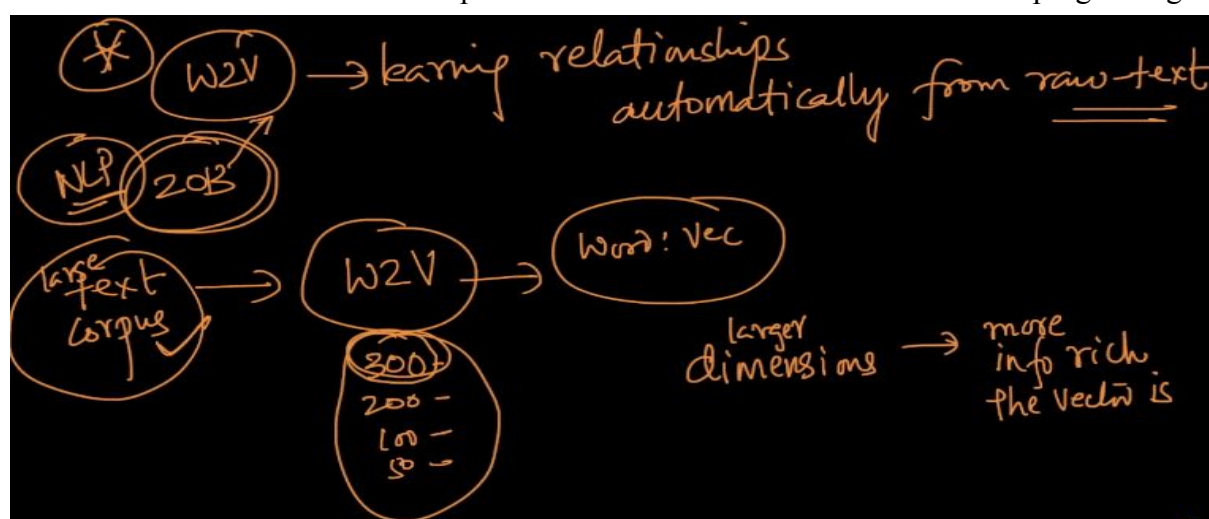 W2V → learning relationships
automatically from raw-text
NLP 2013
large
text
corpus → W2V → Word: Vec
300-
200 -
100 -
50 -
larger
dimensions → more
info rich
the vector is